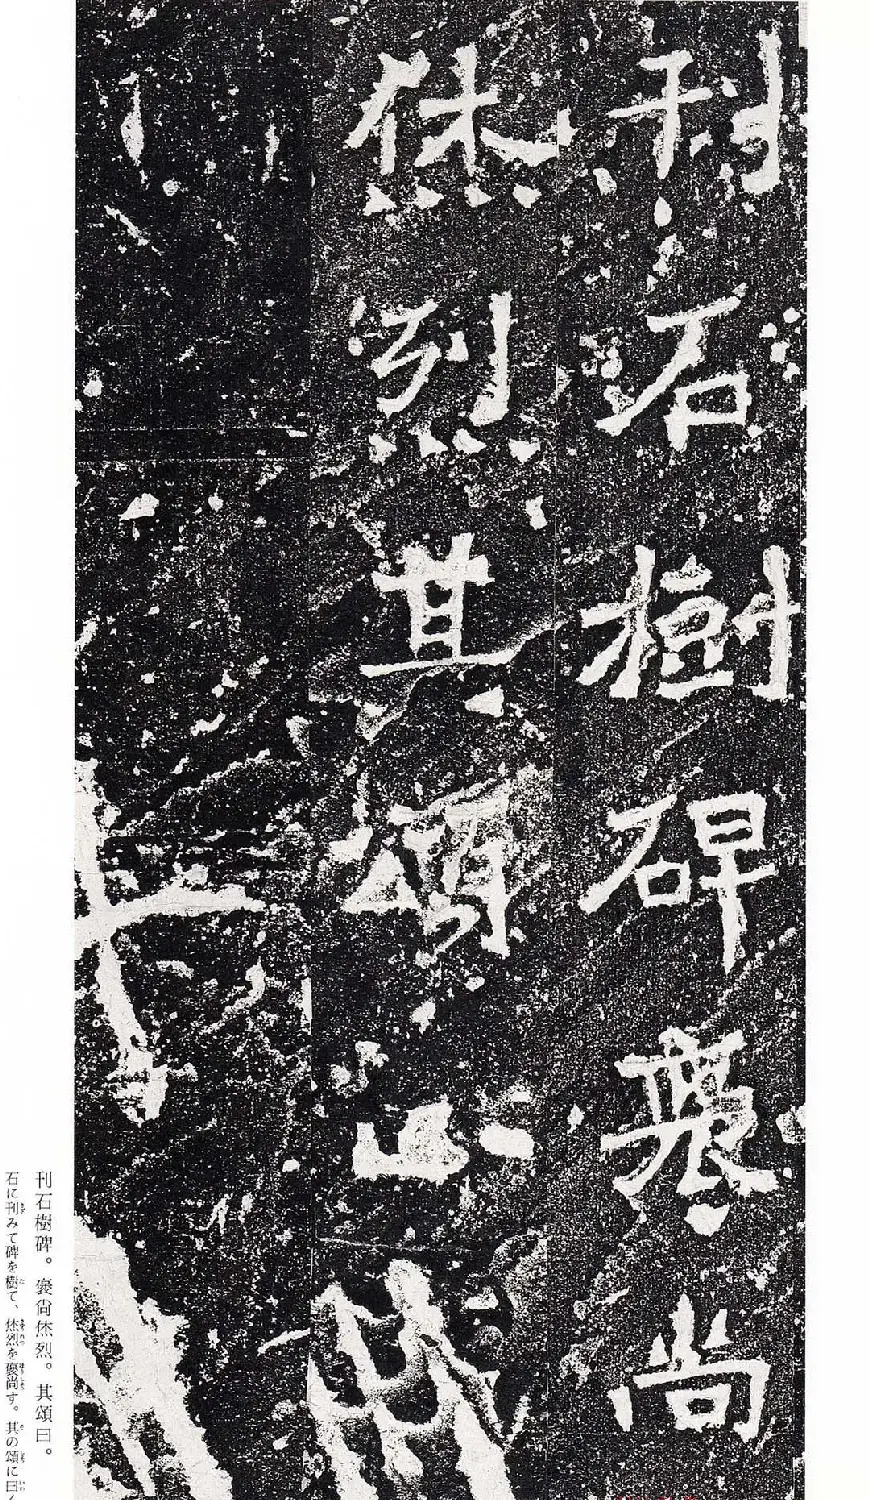 刊石樹碑裦尚
烋烈其頌曰
刊石樹碑。裦尙烋烈。其頌曰。
石に刊みて碑を樹て、烋烈を裦尙す。其の頌に曰く